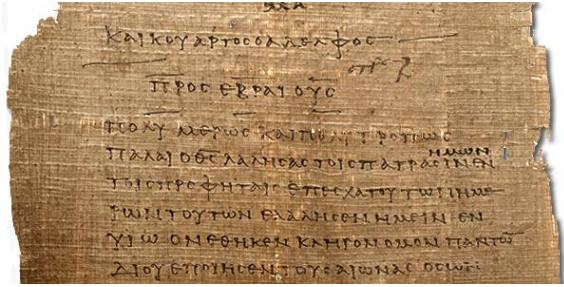 ΚΑΙΚΟΥΑΡΤΟϹΟΑΔΕΛΦΟϹ
ΠΡΟϹ ΕΒΡΑΙΟΥϹ
ΠΟΛΥΜΕΡΩϹ ΚΑΙΠΟΛΥΤΡΟΠΩϹ
ΗΜΩΝ
ΠΑΛΑΙΟΘ̅Ϲ̅ΛΑΛΗϹΑϹΤΟΙϹΠΑΤΡΑϹΙΝΕΝ
ΤΟΙϹΠΡΟΦΗΤΑΙϹ ΕΠΕϹΧΑΤΟΥΤΩΝΗΜΕ
ΡΩΝΤΟΥΤΩΝ ΕΛΑΛΗϹΕΝΗΜΕΙΝ ΕΝ
ΥΙΩ ΟΝΕΘΗΚΕΝ ΚΛΗΡΟΝΟΜΟΝ ΠΑΝΤΩ̅
ΔΙΟΥΕΠΟΙΗϹΕΝΤΟΥϹΑΙΩΝΑϹ ΟϹΩΝ